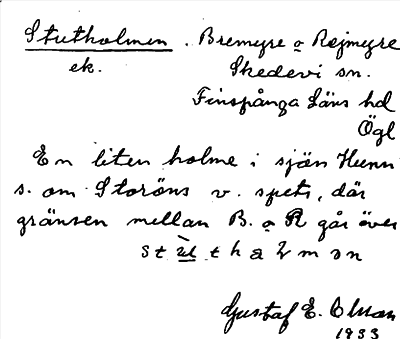 Stutholmen. Bremyre o Rejmyre
ek. Skedevi sn.
Finspånga Läns hd
Ögl
En liten holme i sjön Hunn
s. om Storöns v. spets, där
gränsen mellan B. o R går över
Gustaf E.
1933